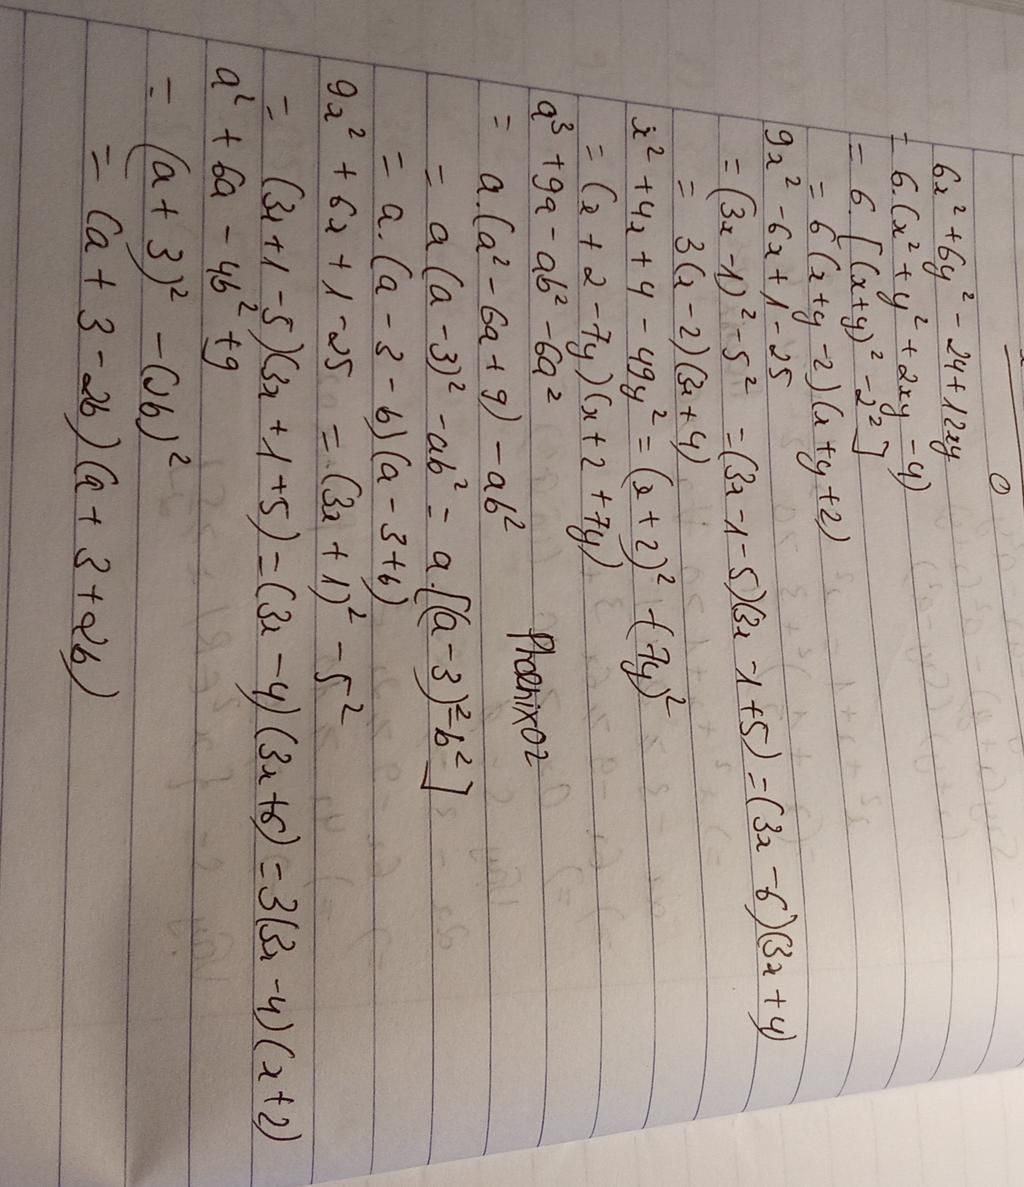 6x² + 6y² - 24 + 12xy
= 6.(x² + y² + 2xy - 4)
= 6.[(x+y)² - 2²]
= 6(x+y-2)(x+y+2)
9x² - 6x + 1 - 25
= (3x-1)² - 5² = (3x-1-5)(3x-1+5) = (3x-6)(3x+4)
= 3(x-2)(3x+4)
x² + 4x + 4 - 49y² = (x+2)² - (7y)²
= (x+2-7y)(x+2+7y)
a³ + 9a - ab² - 6a²
= a.(a² - 6a + 9) - ab²
Phoenix02
= a(a-3)² - ab² = a.[(a-3)² - b²]
= a.(a-3-b)(a-3+b)
9x² + 6x + 1 - 25 = (3x+1)² - 5²
= (3x+1-5)(3x+1+5) = (3x-4)(3x+6) = 3(3x-4)(x+2)
a² + 6a - 4b² + 9
= (a+3)² - (2b)²
= (a+3-2b)(a+3+2b)